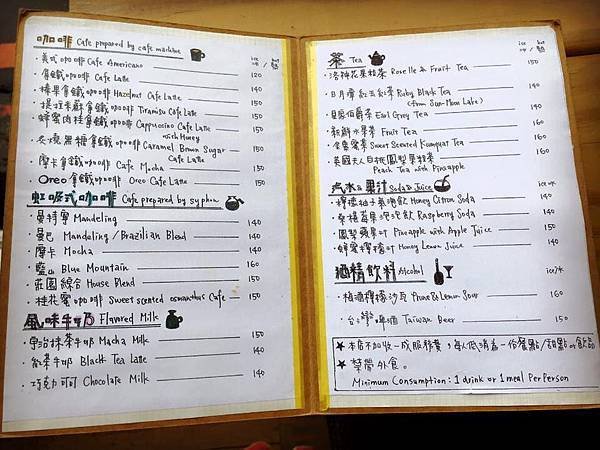 咖啡 Cafe prepared by cafe machine ice 冰 / hot 熱
・美式咖啡 Cafe Americano 120
・拿鐵咖啡 Cafe Latte 140
・榛果拿鐵咖啡 Hazelnut Cafe Latte 140
・提拉米蘇拿鐵咖啡 Tiramisu Cafe Latte 140
・蜂蜜肉桂拿鐵咖啡 Cappuccino Cafe Latte with Honey 150
・炭燒黑糖拿鐵咖啡 Caramel Brown Sugar Cafe Latte 150
・摩卡拿鐵咖啡 Cafe Mocha 150
・Oreo拿鐵咖啡 Oreo Cafe Latte 150
虹吸式咖啡 Cafe prepared by syphon
・曼特寧 Mandeling 140
・曼巴 Mandaling / Brazilian Blend 140
・摩卡 Mocha 140
・藍山 Blue Mountain 160
・莊園綜合 House Blend 150
・桂花蜜咖啡 Sweet scented osmanthus Cafe 150
風味牛奶 Flavored Milk
・宇治抹茶牛奶 Macha Milk 150
・紅茶牛奶 Black Tea Latte 140
・巧克力可可 Chocolate Milk 140
茶 Tea ice 冰 / hot 熱
・洛神花果粒茶 Roselle & Fruit Tea 150
・日月潭紅玉紅茶 Ruby Black Tea 140
(from Sun-Moon Lake)
・伯爵茶 Earl Grey Tea 140
・新鮮水果茶 Fruit Tea 160
・金香蜜茶 Sweet Scented Kumquat Tea 160
・英國夫人白桃鳳梨果粒茶 160
Peach Tea with Pineapple
汽水 & 果汁 Soda & Juice ice 冰
・檸檬柚子氣泡飲 Honey Citron Soda 140
・桑椹莓果泡泡飲 Raspberry Soda 140
・鳳梨蘋果汁 Pineapple with Apple Juice 150
・蜂蜜檸檬汁 Honey Lemon Juice 140
酒精飲料 Alcohol ice/冰
・梅酒檸檬沙瓦 Plum & Lemon Sour 160
・台灣啤酒 Taiwan Beer 150
★ 本店不加收一成服務費，每人低消為一份餐點/甜點or飲品
★ 禁帶外食。
Minimum Consumption: 1 drink or 1 meal Per Person